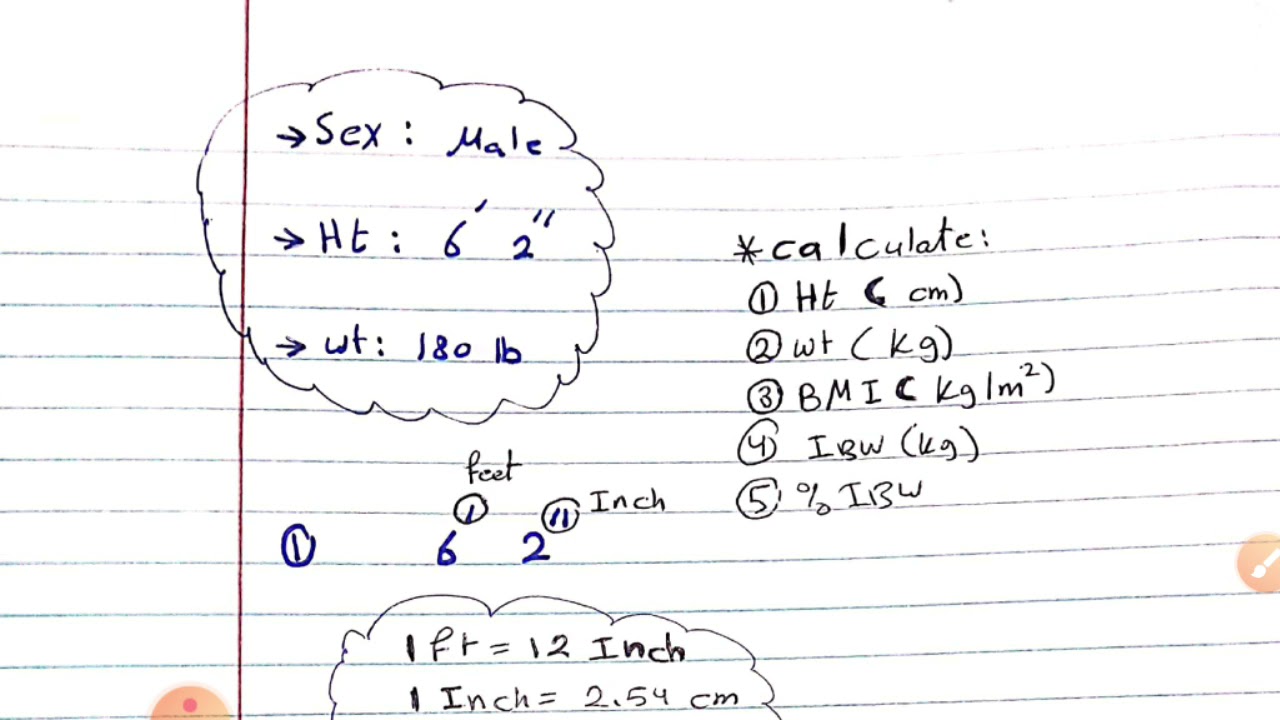 → Sex : Male
→ Ht : 6' 2"
→ wt : 180 lb
*calculate:
① Ht ( cm)
② wt ( kg)
③ BMI ( kg/m²)
④ IBW (kg)
⑤ % IBW
feet
' " Inch
① 6 2
1 ft = 12 Inch
1 Inch = 2.54 cm